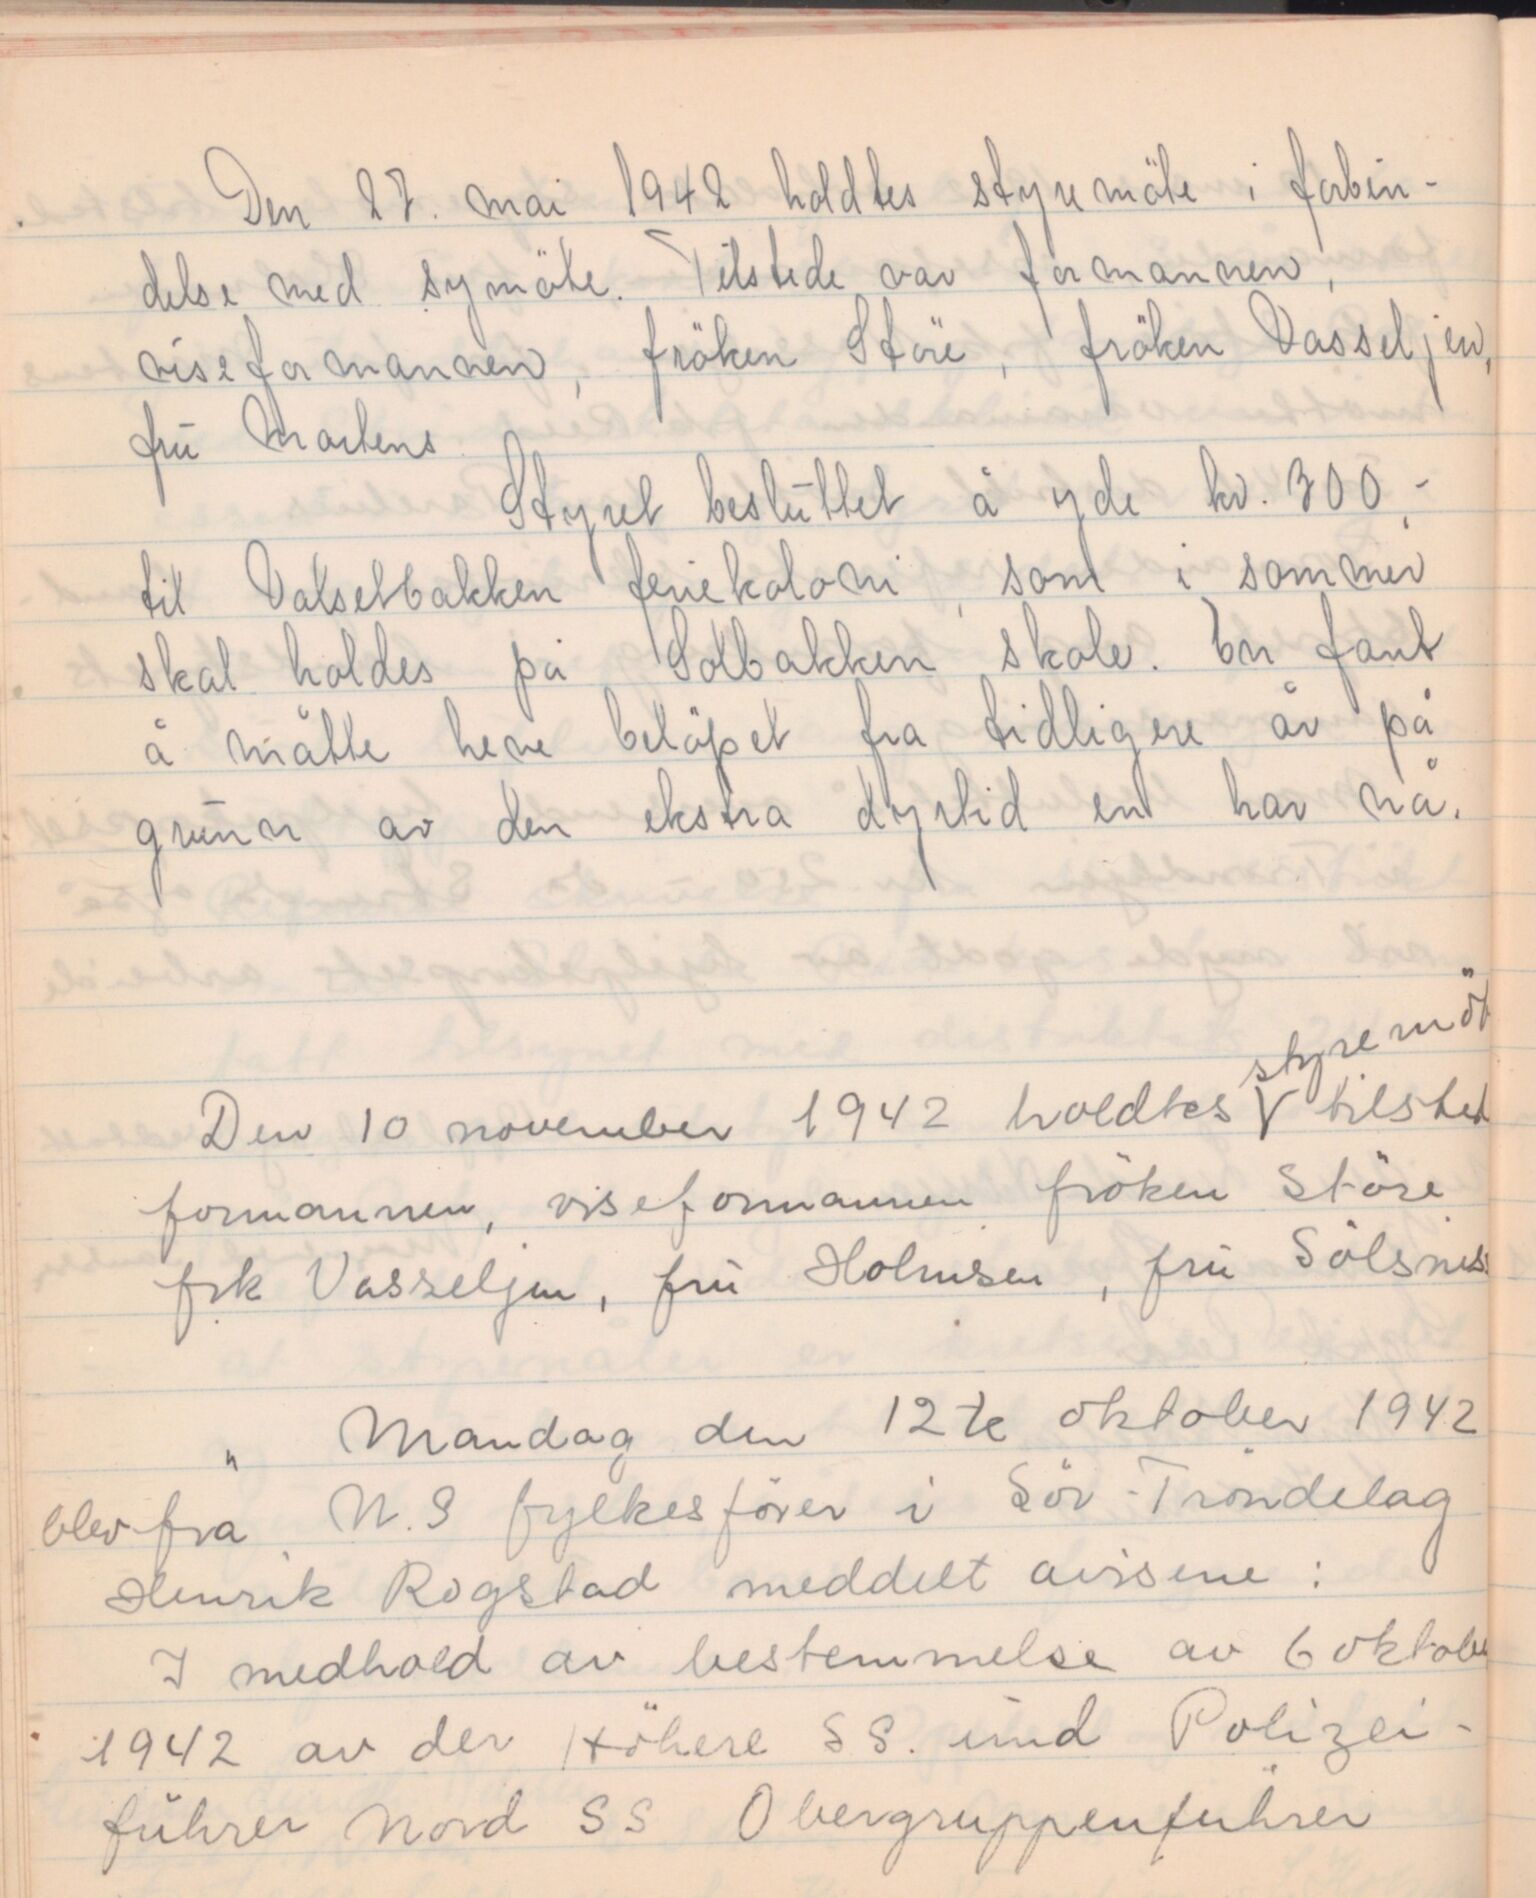 Den 27. mai 1942 holdtes styremöte i forbin-
delse med symöte. Tilstede var formannen,
viseformannen, fröken Störe, fröken Vasseljen,
fru Martens
Styret besluttet å yde kr. 300,-
til Valsetbakken feriekoloni, som i sommer
skal holdes på Solbakken skole. En fant
å måtte heve belöpet fra tidligere år på
grunn av den ekstra dyrtid en har nå.
styremöt
Den 10 november 1942 holdtes V tilsted
formannen, viseformannen fröken Störe
frk Vasseljen, fru Holmsen, fru Sölsnes
" Mandag den 12te oktober 1942
blev fra N.S fylkesförer i Sör-Tröndelag
Henrik Rogstad meddelt avisene:
I medhold av bestemmelse av 6 oktober
1942 av der Höhere SS. und Polizei-
führer Nord SS Obergruppenführer